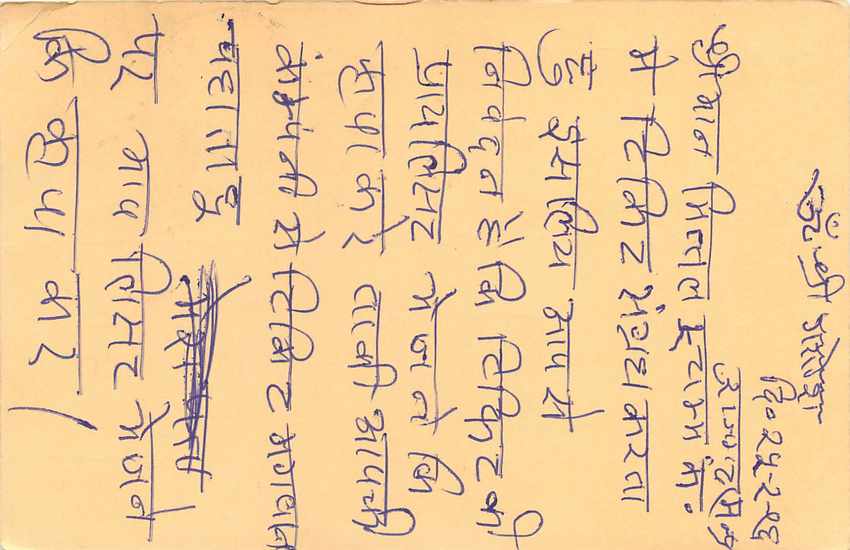 ॐ श्री गणेशाय
दि० २५-२-९६
श्रीमान मित्तल स्टाम्प कं.
मे टिकिट संग्रह करता
हु इसलिय आप से
निवेदन है कि टिकिट की
प्रायलिसट भेजने कि
कृपा करे ताकी आपकी
कंम्पनी से टिकिट मगवाना
चहाता हु
पर भाप लिसट भेजने
कि कृपा करे